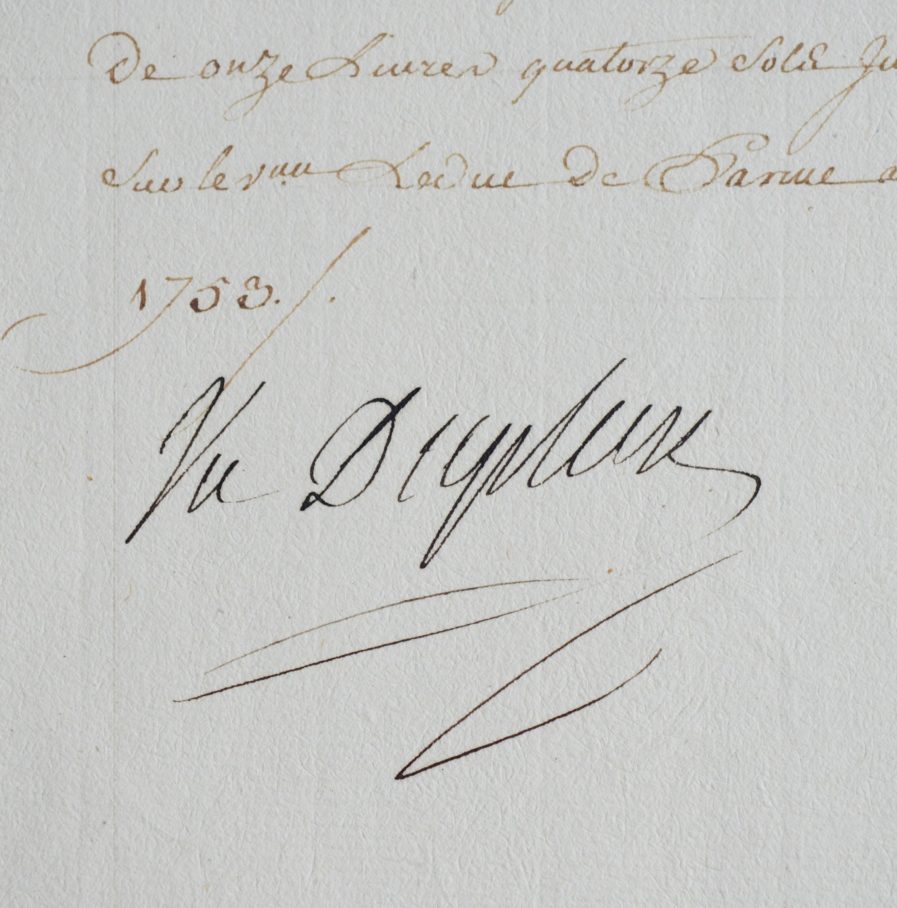 De onze Livres quatorze Sols
Le Duc De Parme
1753./.
Vu Dupleix